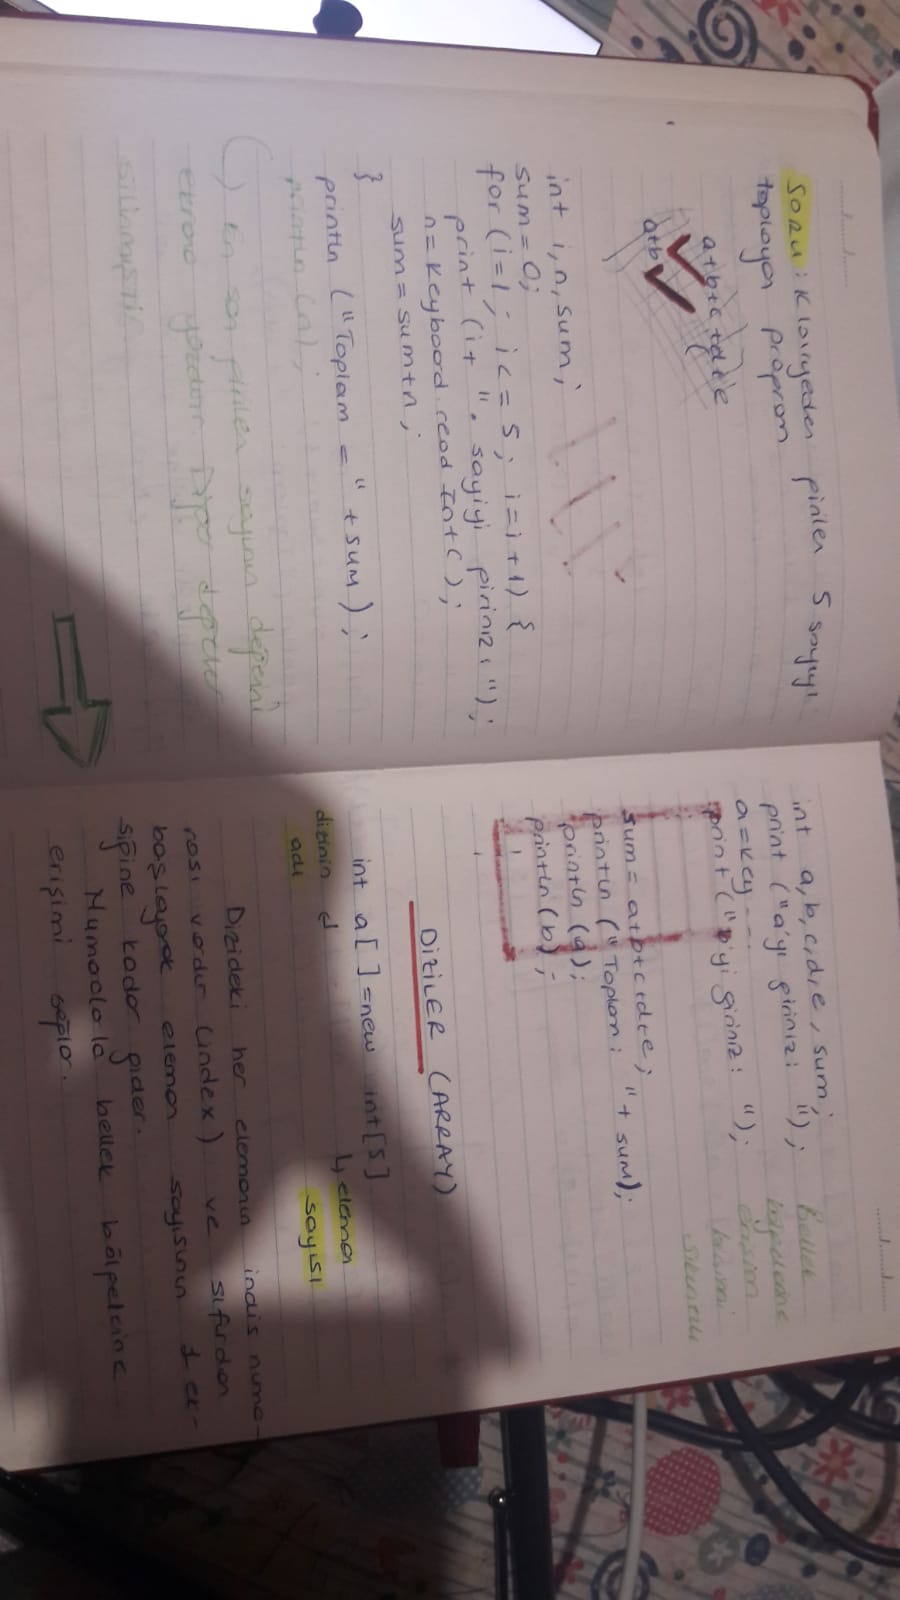 Soru: Klavyeden girilen 5 sayıyı
toplayan program
a+b+c+d+e
a+b
int i, n, sum;
sum=0;
for (i=1; i<=5; i=i+1) {
print (i+ ". sayiyi giriniz: ");
n=Keyboard.readInt();
sum=sum+n;
}
println ("Toplam = " + sum);
println (n);
() En son girilen sayının değerini
ekrana yazdırır. Diğer değerler
silinmiştir.
int a,b,c,d,e, sum;
print ("a'yı giriniz: ");
a=key ---
print ("b'yi giriniz: ");
sum=a+b+c+d+e;
println ("Toplam: "+sum);
println (a);
println (b);
Bellek
bölgelerine
erişim
kısmı
sıkıntılı
DİZİLER (ARRAY)
int a[]=new int[5]
dizinin adı
↳ eleman sayısı
Dizideki her elemanın indis numa-
rası vardır (index) ve sıfırdan
başlayarak eleman sayısının 1 ek-
siğine kadar gider.
Numarala bellek bölgelerine
erişimi sağlar.